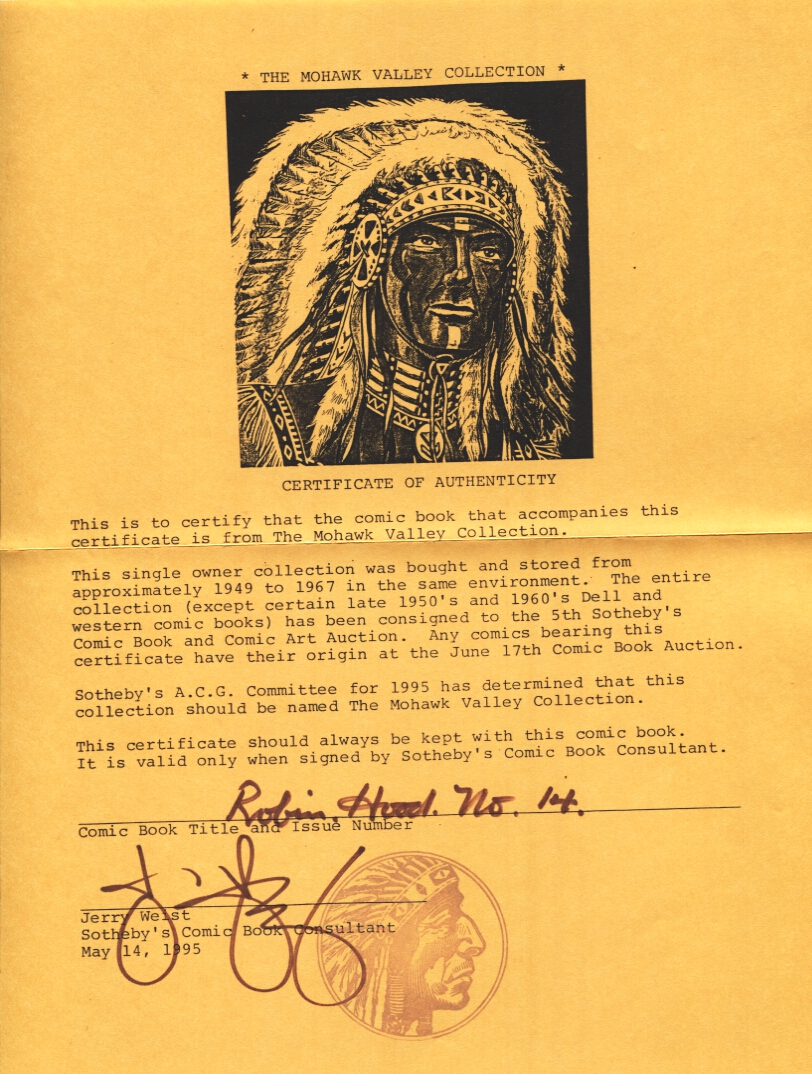 * THE MOHAWK VALLEY COLLECTION *
CERTIFICATE OF AUTHENTICITY
This is to certify that the comic book that accompanies this
certificate is from The Mohawk Valley Collection.
This single owner collection was bought and stored from
approximately 1949 to 1967 in the same environment. The entire
collection (except certain late 1950's and 1960's Dell and
western comic books) has been consigned to the 5th Sotheby's
Comic Book and Comic Art Auction. Any comics bearing this
certificate have their origin at the June 17th Comic Book Auction.
Sotheby's A.C.G. Committee for 1995 has determined that this
collection should be named The Mohawk Valley Collection.
This certificate should always be kept with this comic book.
It is valid only when signed by Sotheby's Comic Book Consultant.
Robin Hood. No. 14.
Comic Book Title and Issue Number
Jerry Weist
Sotheby's Comic Book Consultant
May 14, 1995